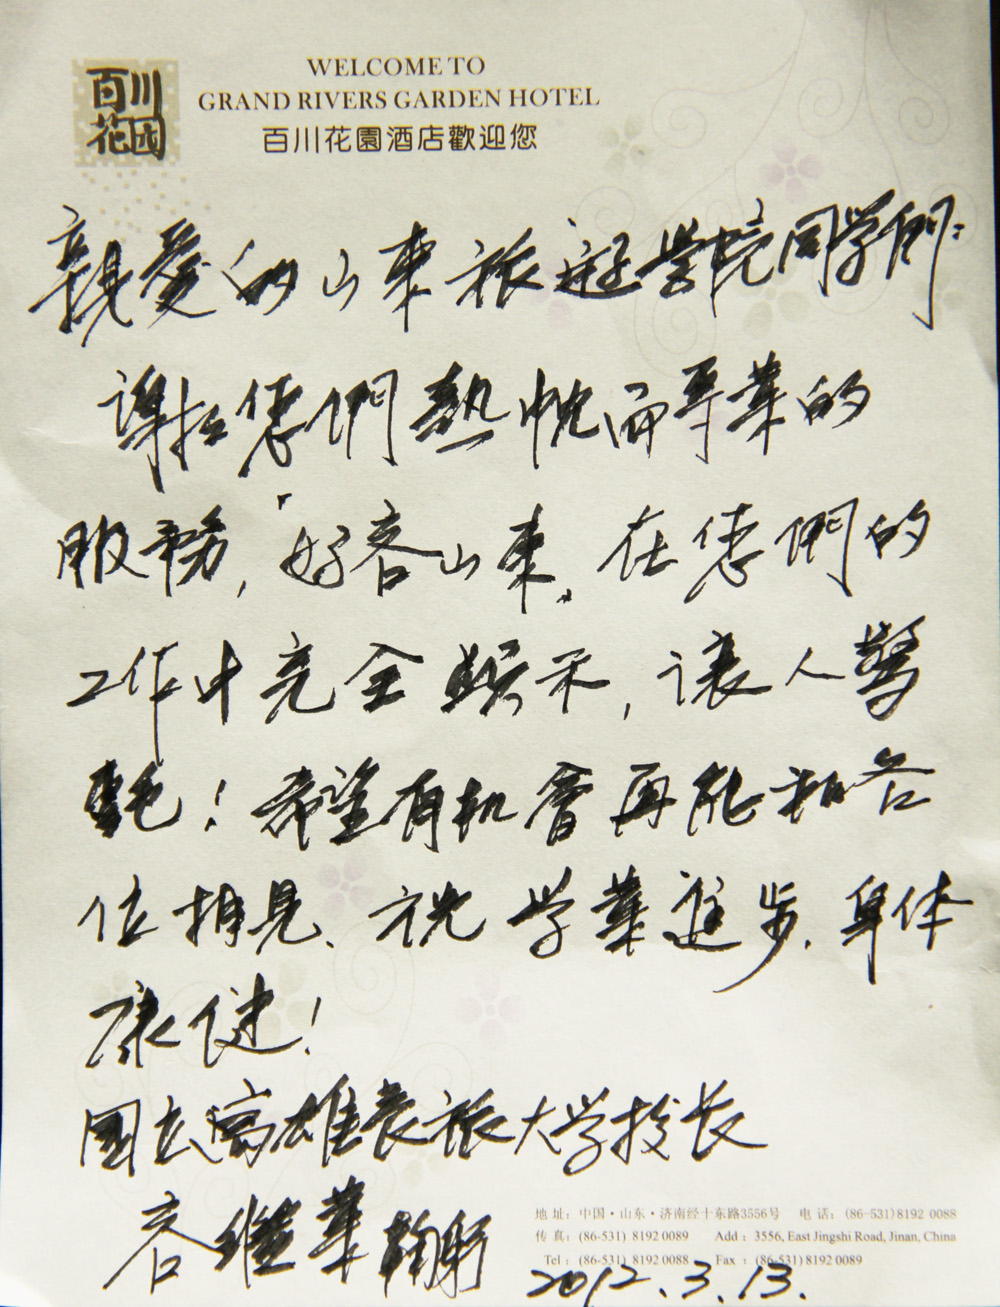 百川
花園
WELCOME TO
GRAND RIVERS GARDEN HOTEL
百川花園酒店歡迎您
親愛的山東旅遊学院同学們:
謝謝您們熱忱而專業的
服務,「好客山東」在您們的
工作中完全顯示,讓人驚
艷!希望有机會再能和各
位相見、祝学業進步、身体
康健!
国立高雄餐旅大学校长
容繼業鞠躬
2012.3.13.
地址:中国·山东·济南经十东路3556号 电话:(86-531)8192 0088
传真:(86-531) 8192 0089 Add:3556, East Jingshi Road, Jinan, China
Tel:(86-531) 8192 0088 Fax:(86-531) 8192 0089